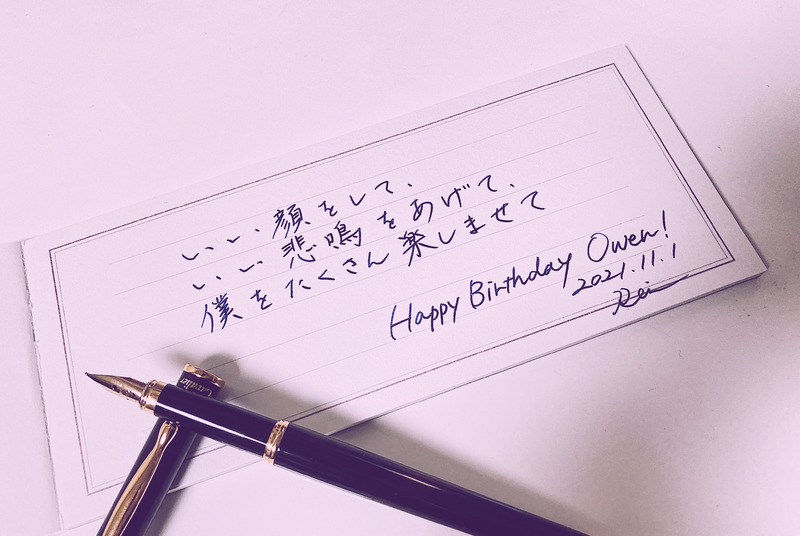 いい顔をして、
いい悲鳴をあげて、
僕をたくさん楽しませて
Happy Birthday Owen!
2021.11.1
Rei